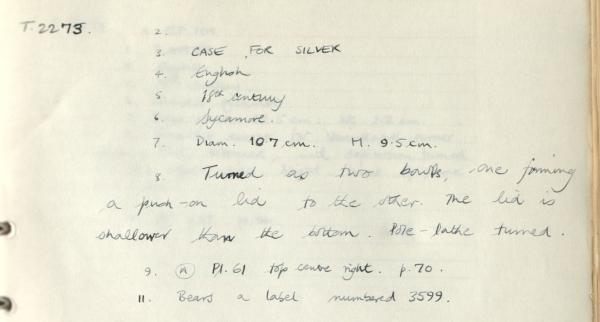 T.2273.
2.
3. CASE FOR SILVER
4. English
5. 18th century
6. Sycamore.
7. Diam. 10.7 cm. H. 9.5 cm.
8. Turned as two bowls, one forming
a push-on lid to the other. The lid is
shallower than the bottom. Pole-lathe turned.
9. (A) Pl. 61 top centre right. p. 70.
11. Bears a label numbered 3599.